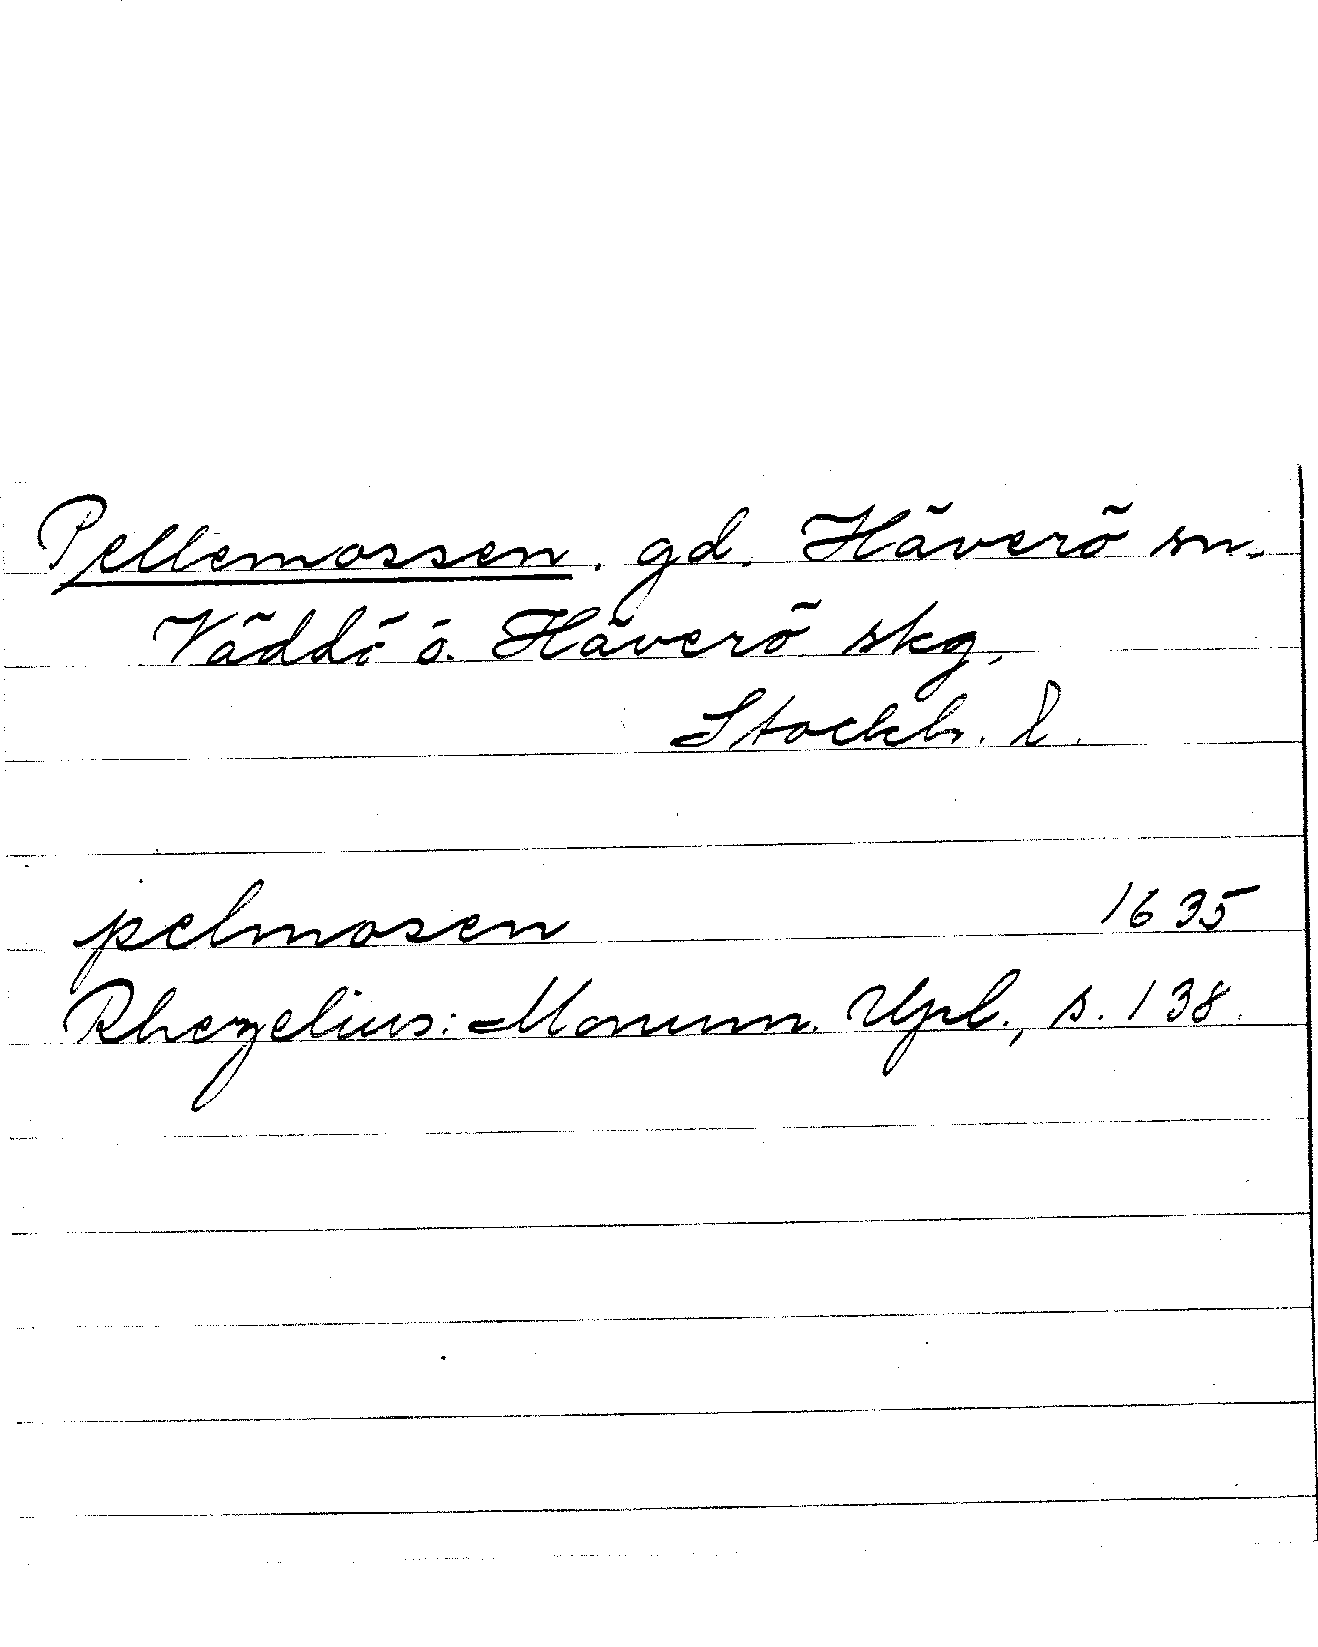 Pellemossen. gd. Häverö sn.
Väddö o. Häverö skg,
Stockh. l.
pelmosen 1635
Rhezelius: Monum. Upl., s. 138.